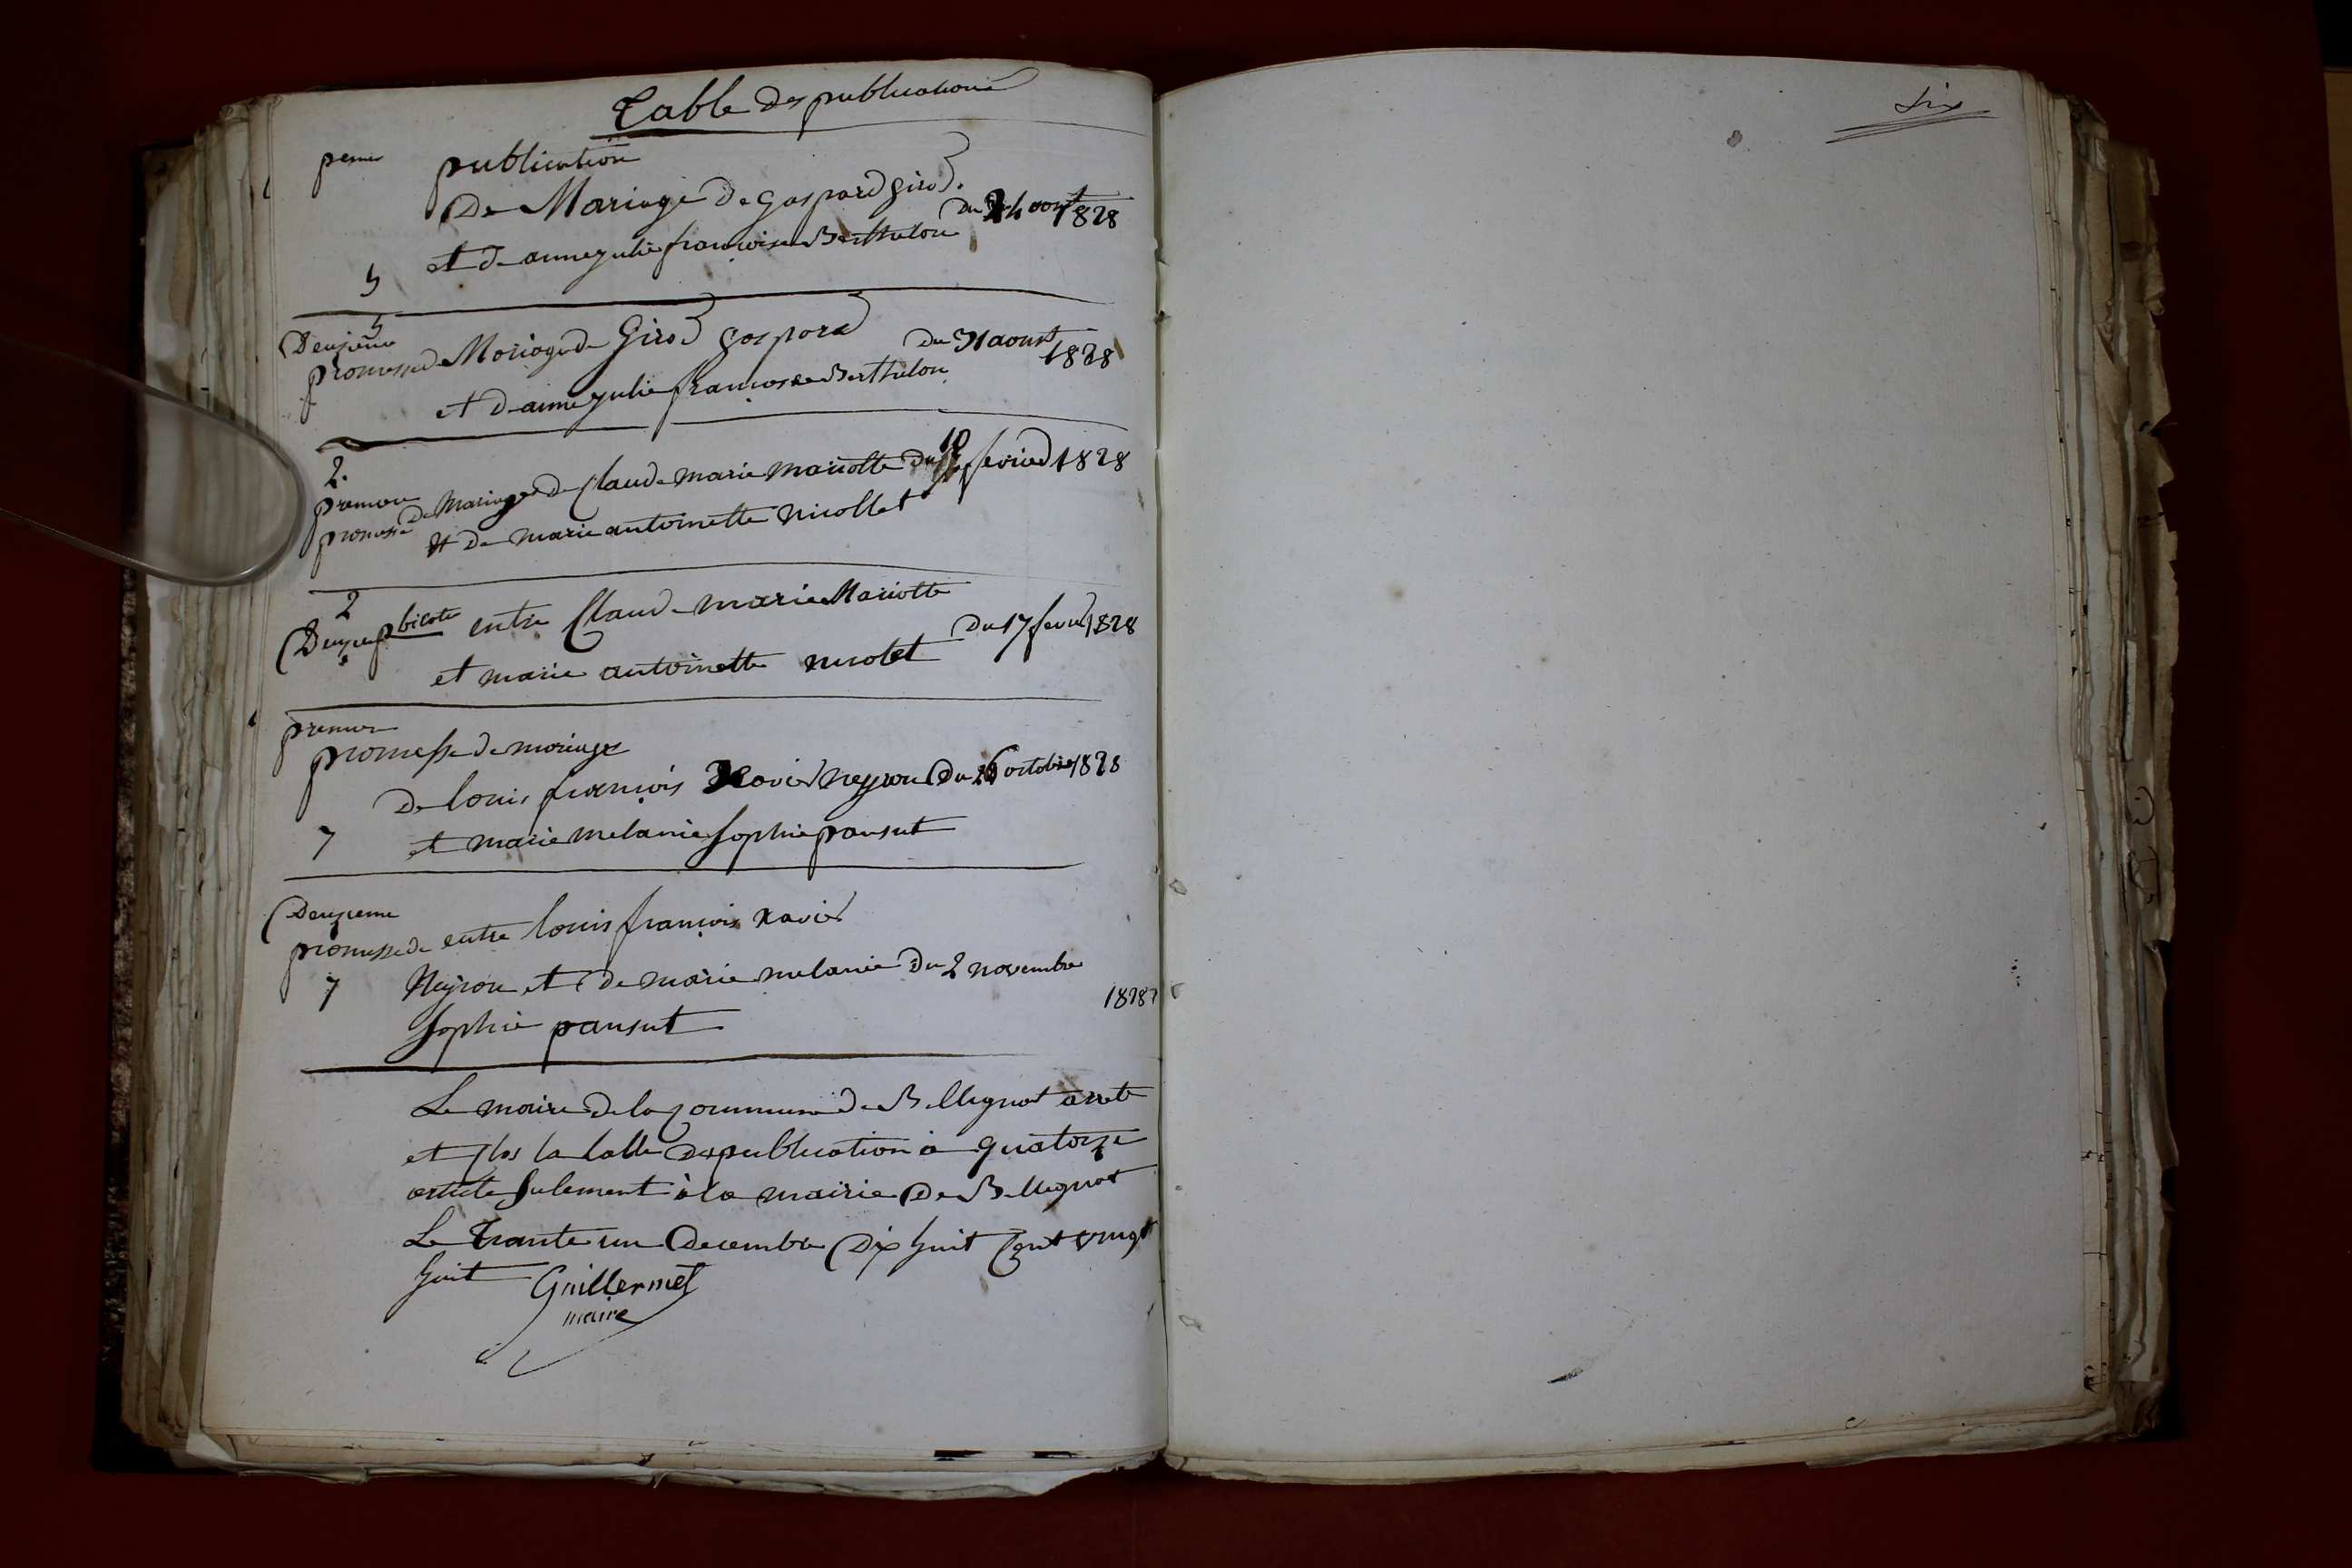 Table des publications
premier publication
De Mariage De gaspard girod.
et d anne julie françoise Berthelon Du 24 aoust 1828
5
5
Deuxieme
promesse de Mariage de Girod gaspard Du 31 aoust
et d anne julie françoise Berthelon 1828
2.
premiere
promesse De Mariage de Claude marie mariotte du 10 fevrier 1828
et De marie antoinette Nicollet
2
Deuxieme entre Claude marie Mariotte
et marie antoinette nicolet Du 17 fevrier 1828
premier
promesse de mariage
De louis françois Xavier neyron Du 26 octobre 1828
7 et marie melanie sophie pansut
Deuxieme
promesse de entre louis françois xavier
7 Neyron et De marie melanie Du 2 novembre
1828
sophie pansut
Le maire de la commune de Bellignat arrete
et clos la table des publication a quatorze
article sulement à la mairie De Bellignat
Le trante un Decembre Dix huit Cent vingt
huit Guillermet
maire
six